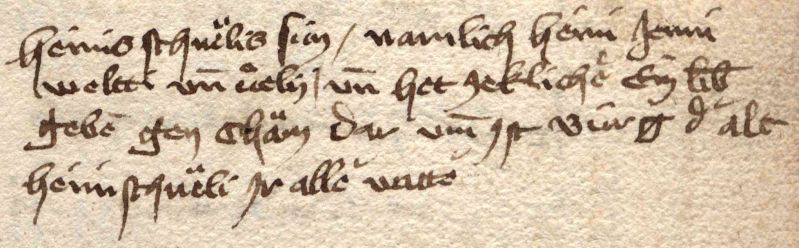 heinis schuͦlis sun / namlich heini Jenni
weltti vn̄ uͦely / vn̄ het Jekliche ein lib
gebē gen Cham dar vm̄ Ist bürg d alt
heini schuͦeli Ir aller vatte